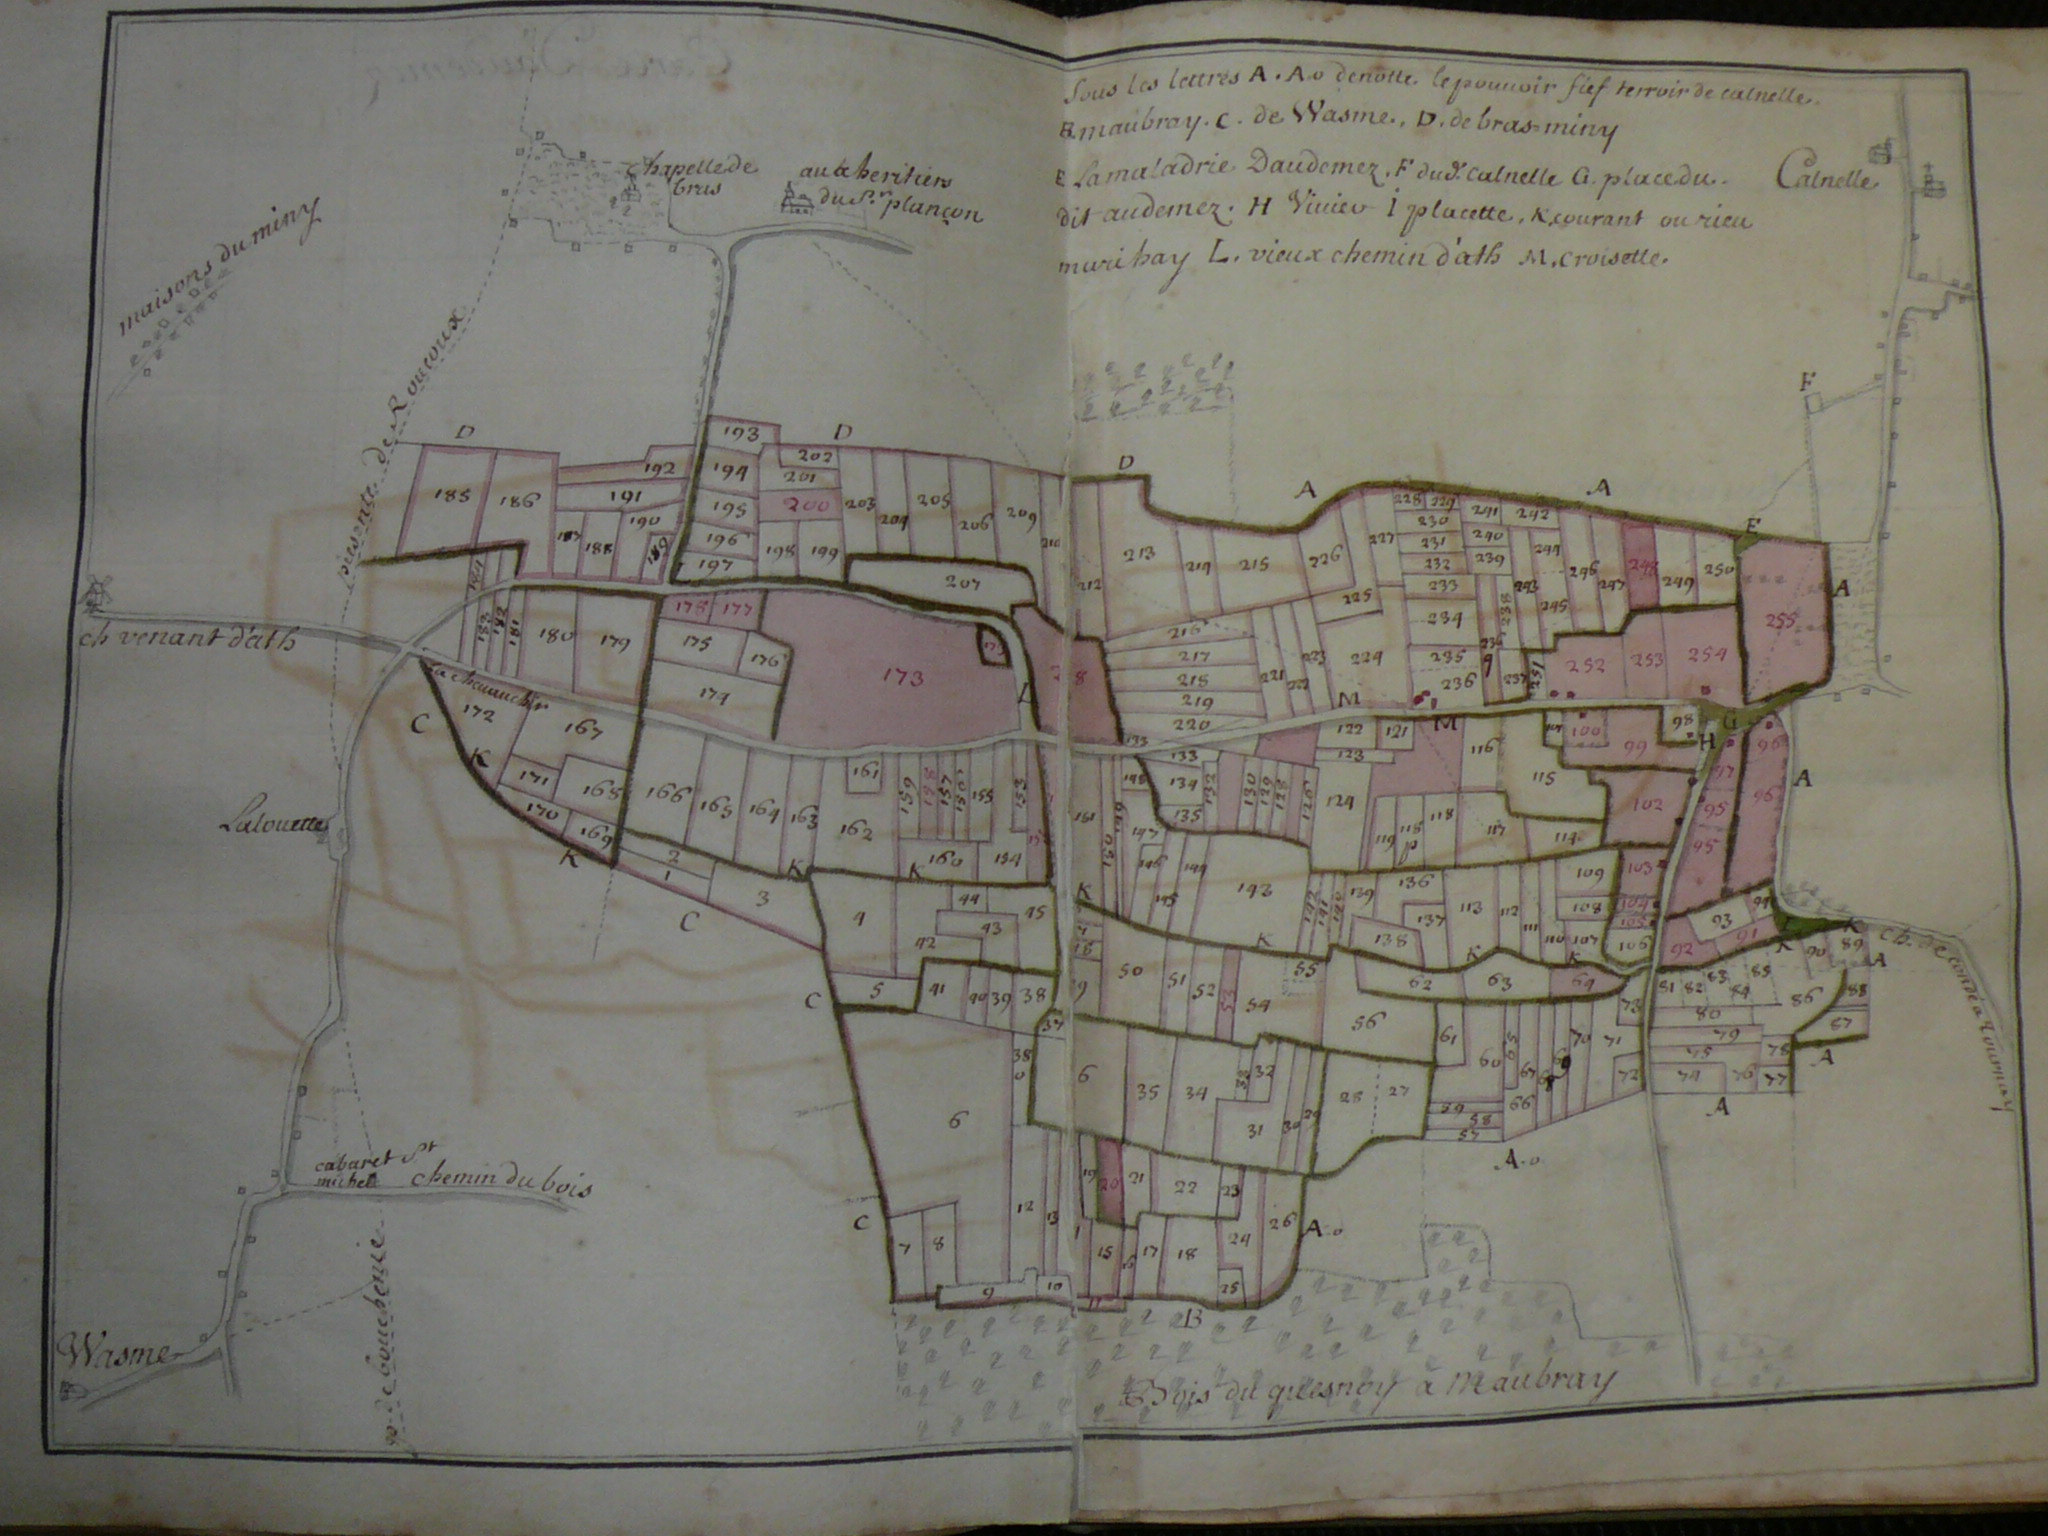 Sous les lettres A. A.o denotte le pouuoir fief terroir de calnelle.
B. maubray. C. de Wasme. D. de bras-miny
E Lamaladrie Daudemez. F du dt. calnelle G. place du.
dit audemez. H Viuier i placette. K. courant ou rieu
muri hay L. vieux chemin d'ath M. Croisette.
Calnelle
chapelle de
bras
aux heritiers
du Sr. plançon
maisons du miny
piesente de Roucoux
ch venant d'ath
Lalouette
cabaret St
michel
chemin du bois
Wasme
Bois du quesnoy a Maubray
ch. de condé a tournay
D D D A A E F A
193 202 192 194 201 185 186 191 195 200 203 204 205 206 209 210
187 188 190 189 196 198 199 197 207
212 213 214 215 226 227 228 229 230 231 232 233 234 235 236 237 238 239 240 241 242
243 244 245 246 247 248 249 250 255
184 183 182 181 180 179 178 177 175 176 174 173
216 217 218 219 220 221 222 223 224 225
251 252 253 254
C 172 167 171 168 170 169 K K
166 165 164 163 162 161 159 158 157 156 155 153 160 154
L M M G H
133 134 135 132 130 129 128 126 124 122 123 121 116 115 119 118 118 117 114
98 99 100 102 97 96 95 95 96 103 104 105 106
2 1 3 4 44 45 43 42 5 41 40 39 38 37
151 150 149 148 147 146 145 144 143 142 141 140 139 138 137 136 113 112 111 110 109 108 107
94 93 92 91 90 89 88 87 86 85 84 83 82 81 80 79 78 77 76 75 74 73 72
50 51 52 53 54 55 56 62 63 64 61 60 65 66 67 70 71 59 58 57
6 7 8 9 10 12 13
6 35 34 32 31 30 29 28 27
19 20 21 22 23 15 16 17 18 24 25 26
C C C K K K K K K K A A A A A.o A.o B